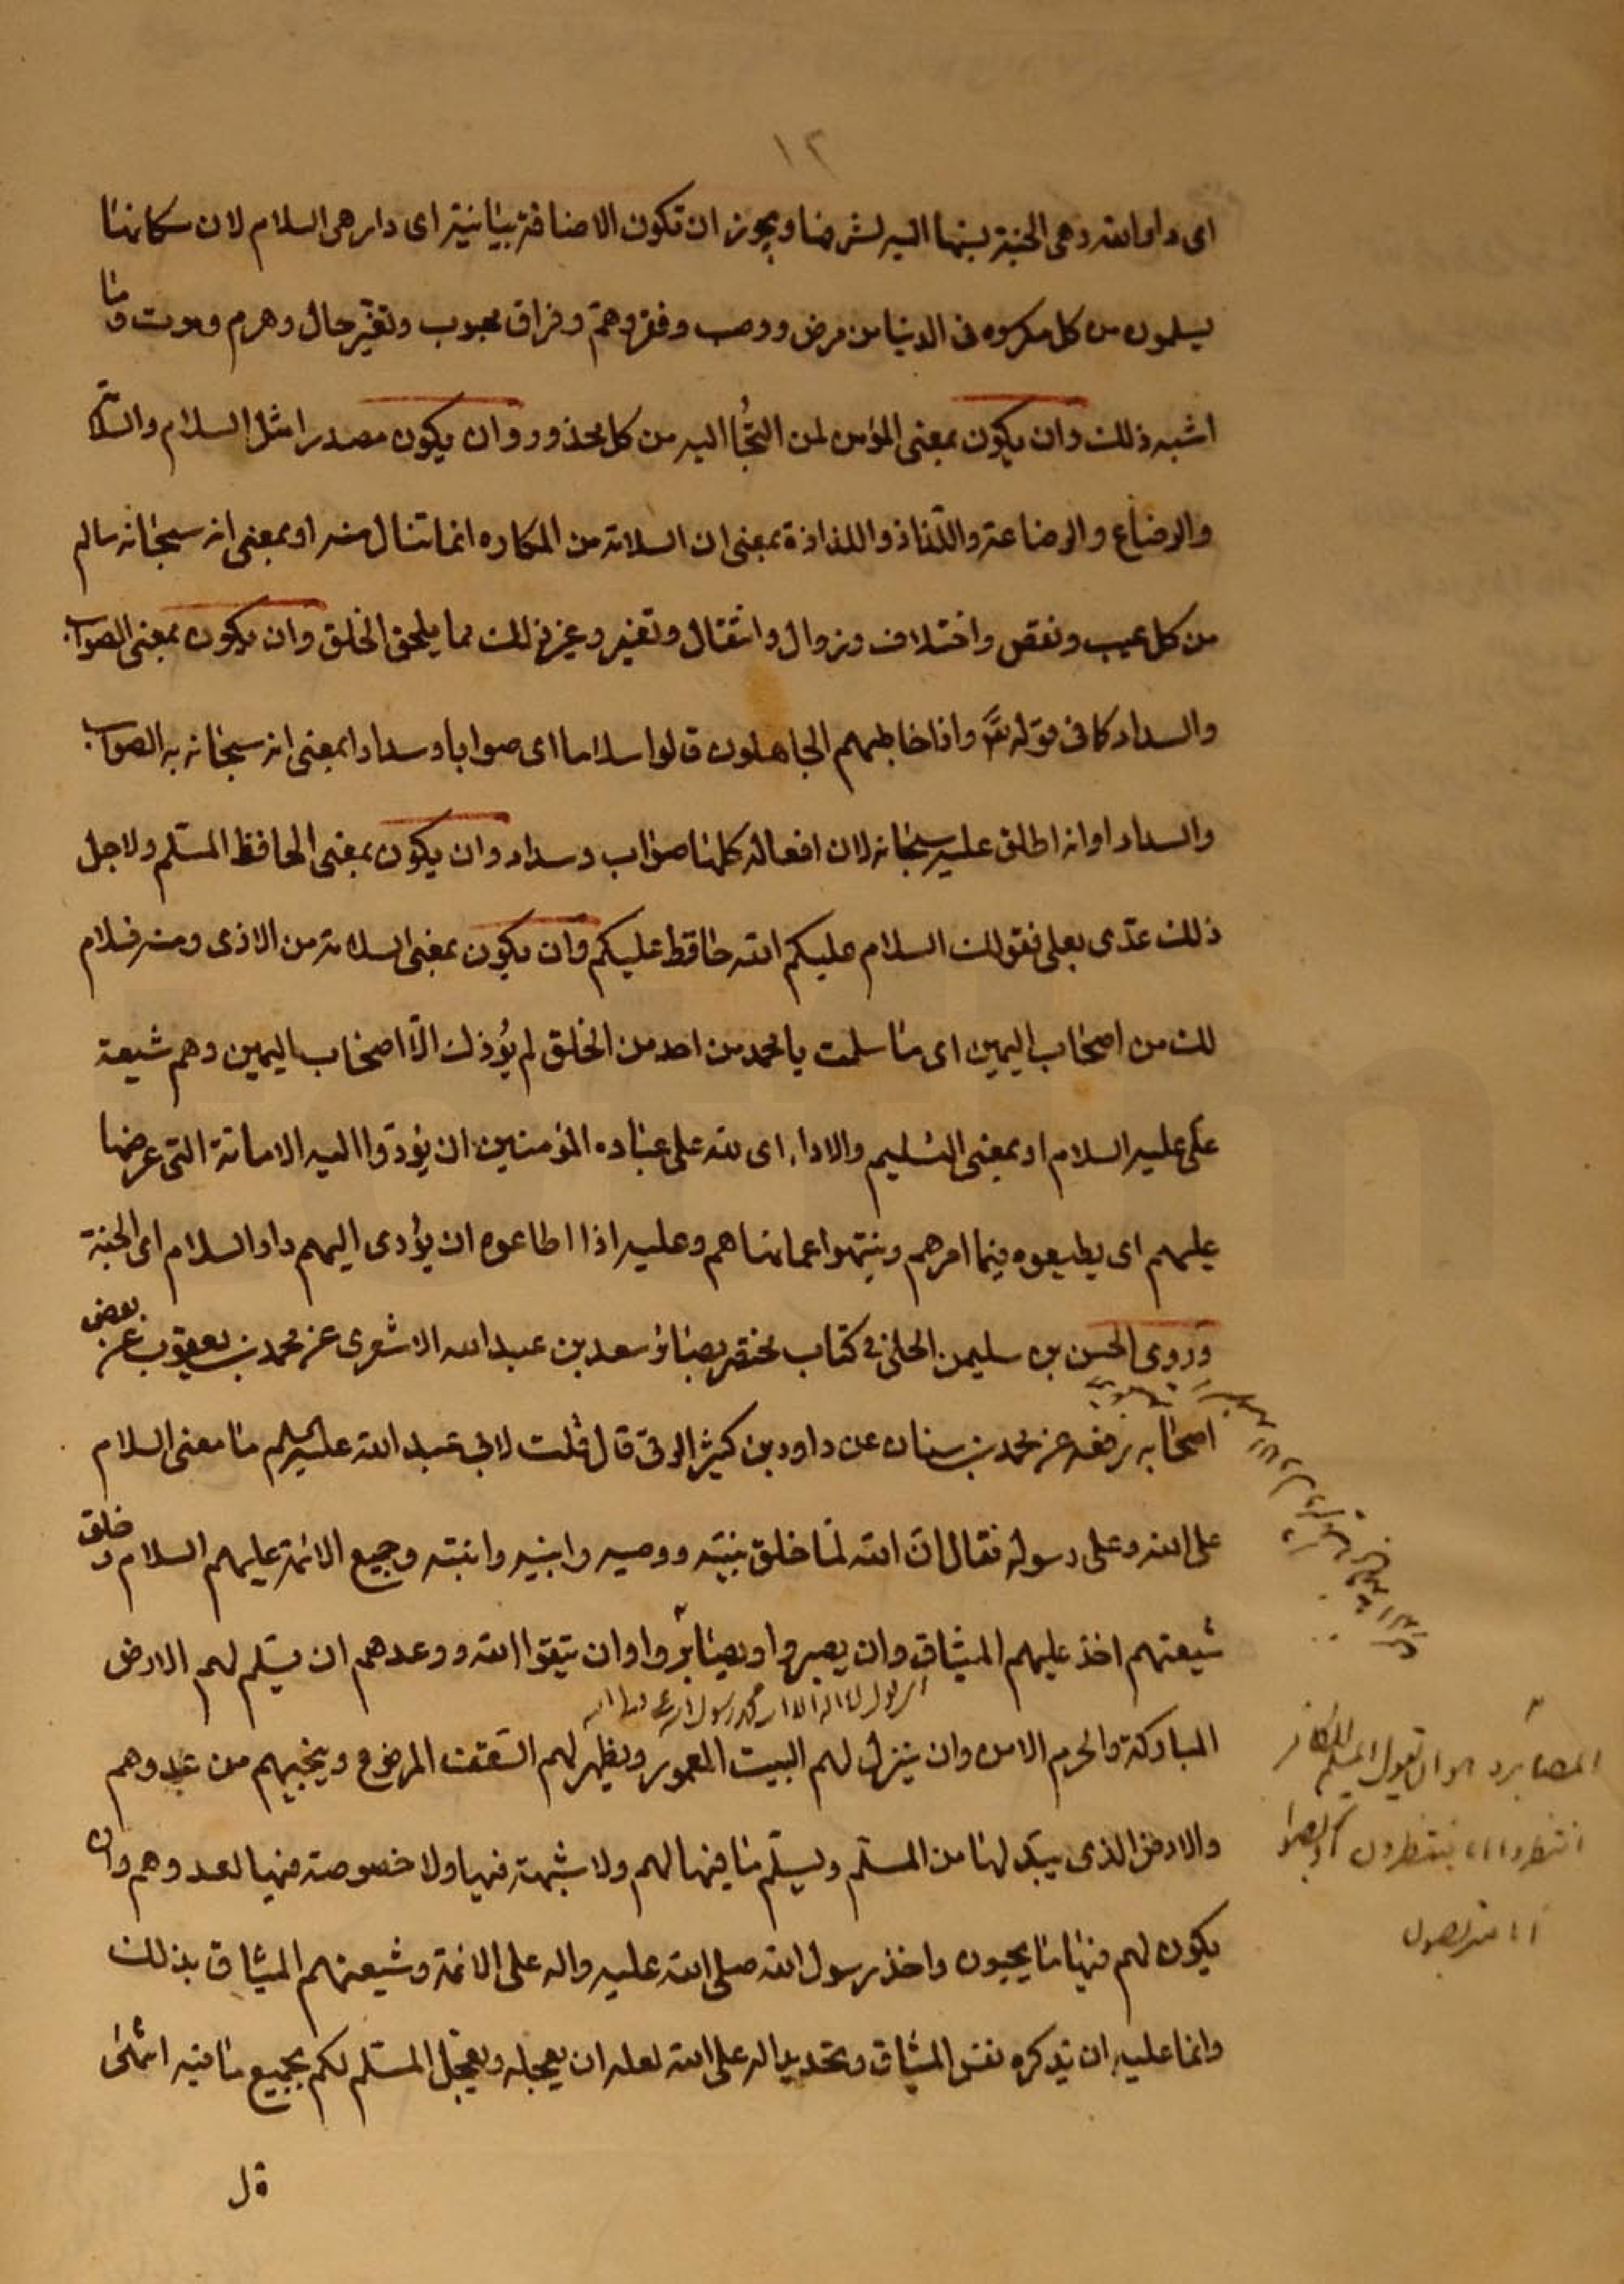 ١٢
اى دار الله وهى الجنة نسبها اليه لشرفها ويجوز ان تكون الاضافة بيانية اى دار هى السلام لان سكانها
يسلمون من كل مكروه فى الدنيا من مرض ووصب وفقر وهمّ وفراق محبوب وتغيّر حال وهرم وموت وما
اشبه ذلك وان يكون بمعنى المؤمن لمن التجُأ اليه من كل محذور وان يكون مصدرا مثل السلام والسلامة
والرضاع والرضاعة واللّذاذ واللذاذة بمعنى ان السلامة من المكاره انما تنال منه او بمعنى انه سبحانه سالم
من كل عيب ونقص واختلاف وزوال وانتقال وتغير وغير ذلك مما يلحق الخلق وان يكون بمعنى الصواب
والسداد كما فى قوله تعالى واذا خاطبهم الجاهلون قالوا سلاما اى صوابا وسدادا بمعنى انه سبحانه به الصواب
والسداد او انه اطلق عليه سبحانه لان افعاله كلها صواب وسداد وان يكون بمعنى الحافظ المسلّم ولاجل
ذلك عدّى بعلى فقولك السلام عليكم الله حافظ عليكم وان يكون بمعنى السلامة من الاذى ومنه فسلام
لك من اصحاب اليمين اى ما سلمت يا محمد من احد من الخلق لم يُؤذك الّا اصحاب اليمين وهم شيعة
على عليه السلام او بمعنى التسليم والاداء اى لله على عباده المؤمنين ان يؤدّوا اليه الامانة التى عرضها
عليهم اى يطيعوه فيما امرهم وينتهوا عما نهاهم وعليه اذا اطاعوه ان يؤدى اليهم دار السلام اى الجنة
وروى الحسن بن سليمن الحلى فى كتاب مختصر بصائر سعد بن عبد الله الاشعرى عن محمد بن يعقوب عن بعض
اصحابه رفعه عن محمد بن سنان عن داود بن كثير الرقى قال قلت لابى عبد الله عليه السلم ما معنى السلام
على الله وعلى رسوله فقال انّ الله لمّا خلق نبيّه ووصيه وابنيه وابنته وجميع الائمة عليهم السلام وخلق
شيعتهم اخذ عليهم الميثاق وان يصبروا ويصابروا وان يتقوا الله ووعدهم ان يسلم لهم الارض
المباركة والحرم الامن وان ينزل لهم البيت المعمور ويظهر لهم السّقف المرفوع وينجيهم من عدوهم
والارض الذى يبدّلها من المسلّم ويسلّم ما فيها لهم ولا شبهة فيها ولا خصومة فيها لعدوهم وان
يكون لهم فيها ما يحبون واخذ رسول الله صلى الله عليه واله على الائمة وشيعتهم الميثاق بذلك
وانما عليه ان تذكره نفس الميثاق وتجديدا له على الله لعله ان يعجله ويعجّل المسلّم لكم بجميع ما فيه انتهى
المصابرة هو ان يقول المسلم للكافر
انتظروا انا منتظرون
قل